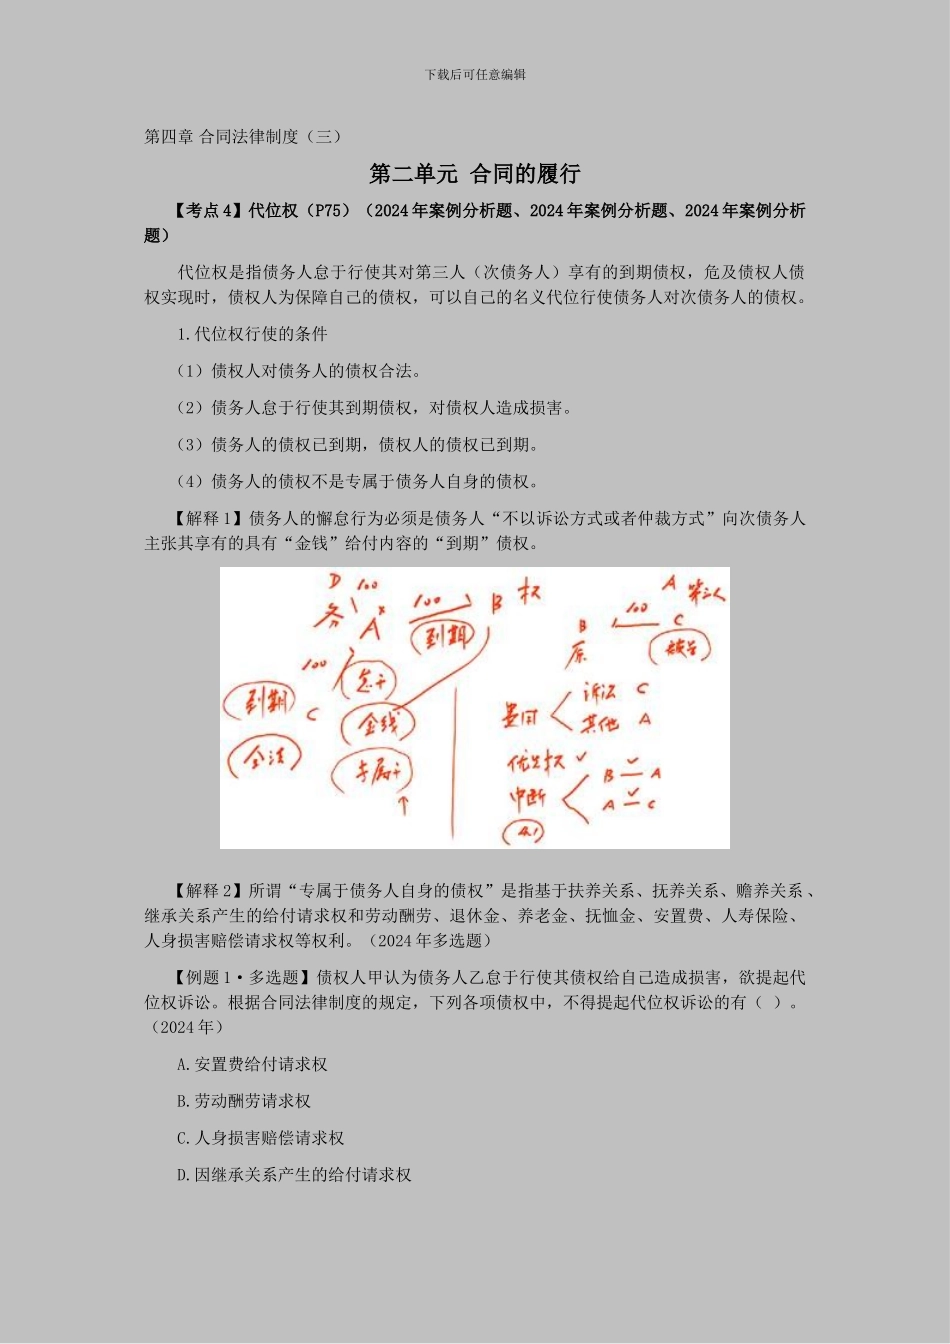 下载后可任意编辑
第四章 合同法律制度（三）
第二单元 合同的履行
【考点 4】代位权（P75）（2024 年案例分析题、2024 年案例分析题、2024 年案例分析
题）
代位权是指债务人怠于行使其对第三人（次债务人）享有的到期债权，危及债权人债
权实现时，债权人为保障自己的债权，可以自己的名义代位行使债务人对次债务人的债权。
1.代位权行使的条件
（1）债权人对债务人的债权合法。
（2）债务人怠于行使其到期债权，对债权人造成损害。
（3）债务人的债权已到期，债权人的债权已到期。
（4）债务人的债权不是专属于债务人自身的债权。
【解释 1】债务人的懈怠行为必须是债务人“不以诉讼方式或者仲裁方式”向次债务人
主张其享有的具有“金钱”给付内容的“到期”债权。
D 100
务 A 100 B 权
到期
100 怠于
到期 C 金钱
合法 专属于
A 第三人
B 100 C
原 被告
费用 诉讼 C
其他 A
优先权
中断 B A
A C
【解释 2】所谓“专属于债务人自身的债权”是指基于扶养关系、抚养关系、赡养关系、
继承关系产生的给付请求权和劳动酬劳、退休金、养老金、抚恤金、安置费、人寿保险、
人身损害赔偿请求权等权利。（2024 年多选题）
【例题 1·多选题】债权人甲认为债务人乙怠于行使其债权给自己造成损害，欲提起代
位权诉讼。根据合同法律制度的规定，下列各项债权中，不得提起代位权诉讼的有（ ）。
（2024 年）
A.安置费给付请求权
B.劳动酬劳请求权
C.人身损害赔偿请求权
D.因继承关系产生的给付请求权